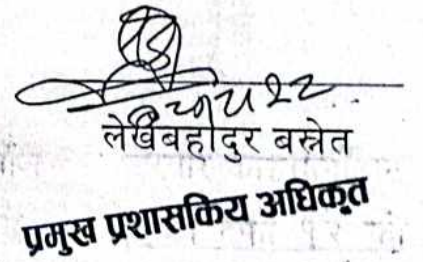 लेखबहादुर बस्नेत
प्रमुख प्रशासकिय अधिकृत